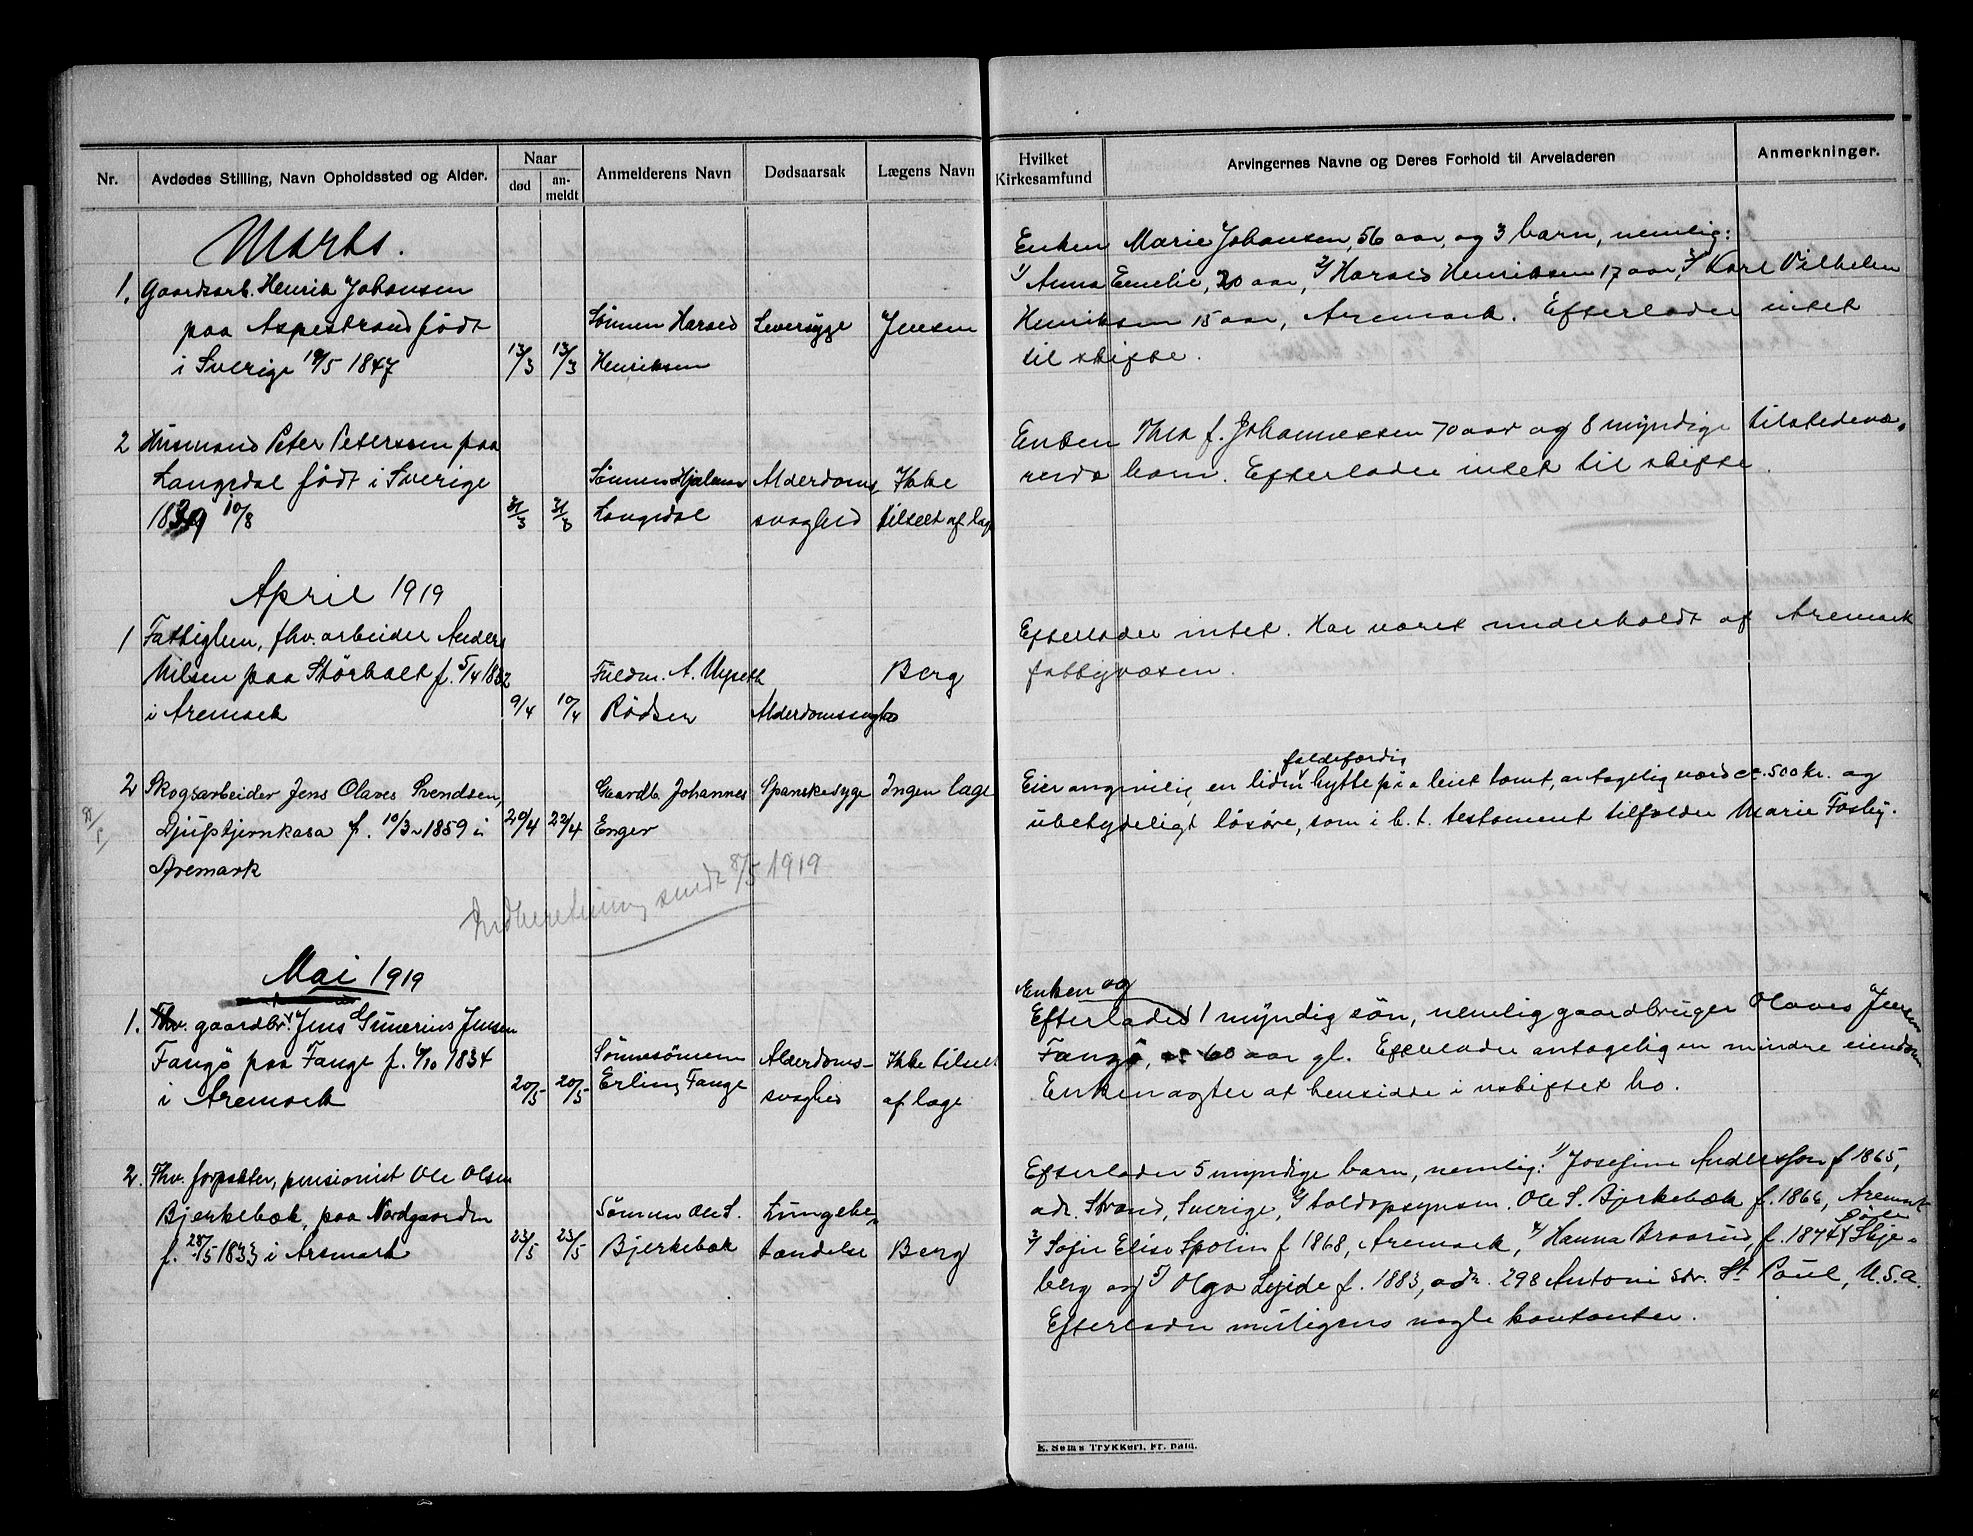 Nr.
Avdødes Stilling, Navn Opholdssted og Alder.
Naar
død
an-
meldt
Anmelderens Navn
Dødsaarsak
Lægens Navn
Hvilket
Kirkesamfund
Arvingernes Navne og Deres Forhold til Arveladeren
Anmerkninger.
Marts.
1. Gaardsarb. Henrik Johansen
paa Aspestrand født
i Sverige 19/5 1847
13/3 13/3
Sønnen Harald
Henriksen
Leversyge
Jensen
Enken Marie Johansen, 56 aar, og 3 barn, nemlig:
1/ Anna Emelie, 20 aar, 2/ Harald Henriksen 17 aar, 3/ Karl Vilhelm
Henriksen 15 aar, Aremark. Efterlader intet
til skifte.
2 Husmand Peter Peterssen paa
Langedal født i Sverige
10/8
31/3 31/3
Sønnen Hjalmar
Langedal
Alderdoms
svaghed
Ikke
tilset af læge
Enken Thea f. Johannessen 70 aar og 8 myndige tilstedevæ-
rende barn. Efterlader intet til skifte.
April 1919
1 Fattiglem, fhv. arbeider Anders
Nilsen paa Størholt f. 5/4 1832
i Aremark
9/4 10/4
Fuldm. A.
Rødsen
Alderdomssvaghed
Berg
Efterlader intet. Har været underholdt af Aremark
fattigvæsen.
2 Skogsarbeider Jens Olaves Svendsen,
Djuptjernkasa f. 10/3 1859 i
Aremark
20/4 22/4
Gaardb. Johannes
Enger
Spanskesyge
Ingen læge
faldefærdig
Eier angivelig en liden hytte paa leiet tomt, antagelig værd ca. 500 kr. og
ubetydeligt løsøre, som i h. t. testament tilfalder Marie Fosby.
Indberetning sendt 8/5 1919
Mai 1919
1. Fhv. gaardbr. Jens Gunerius Jensen
Fangø paa Fange f. 4/10 1834
i Aremark
20/5 20/5
Sønnesønnen
Erling Fange
Alderdoms-
svaghed
Ikke tilset
af læge
Enken og
Efterlader 1 myndig søn, nemlig gaardbruger Olaves Jensen
Fangø, 60 aar gl. Efterlader antagelig en mindre eiendom
Enken agter at hensidde i uskiftet bo.
2. Fhv. forpakter, pensionist Ole Olsen
Bjerkebæk, paa Nordgaarden
f. 28/5 1833 i Aremark
23/5 23/5
Sønnen Ole S.
Bjerkebæk
Lungebe-
tændelse
Berg
Efterlader 5 myndige barn, nemlig: 1/ Josefine Andersson f 1865,
adr. Strand, Sverige, 2/ toldopsynsm. Ole S. Bjerkebæk f. 1866, Aremark
3/ Sofie Elise Spolin f 1868, Aremark, 4/ Hanna Braarud, f. 1874, Skje-
berg og 5/ Olga Lyeide f. 1883, adr. 298 Antoni str. St Paul, U.S.A.
Efterlader muligens nogle kontanter.
E. Sems Trykkeri, Fr. hald.